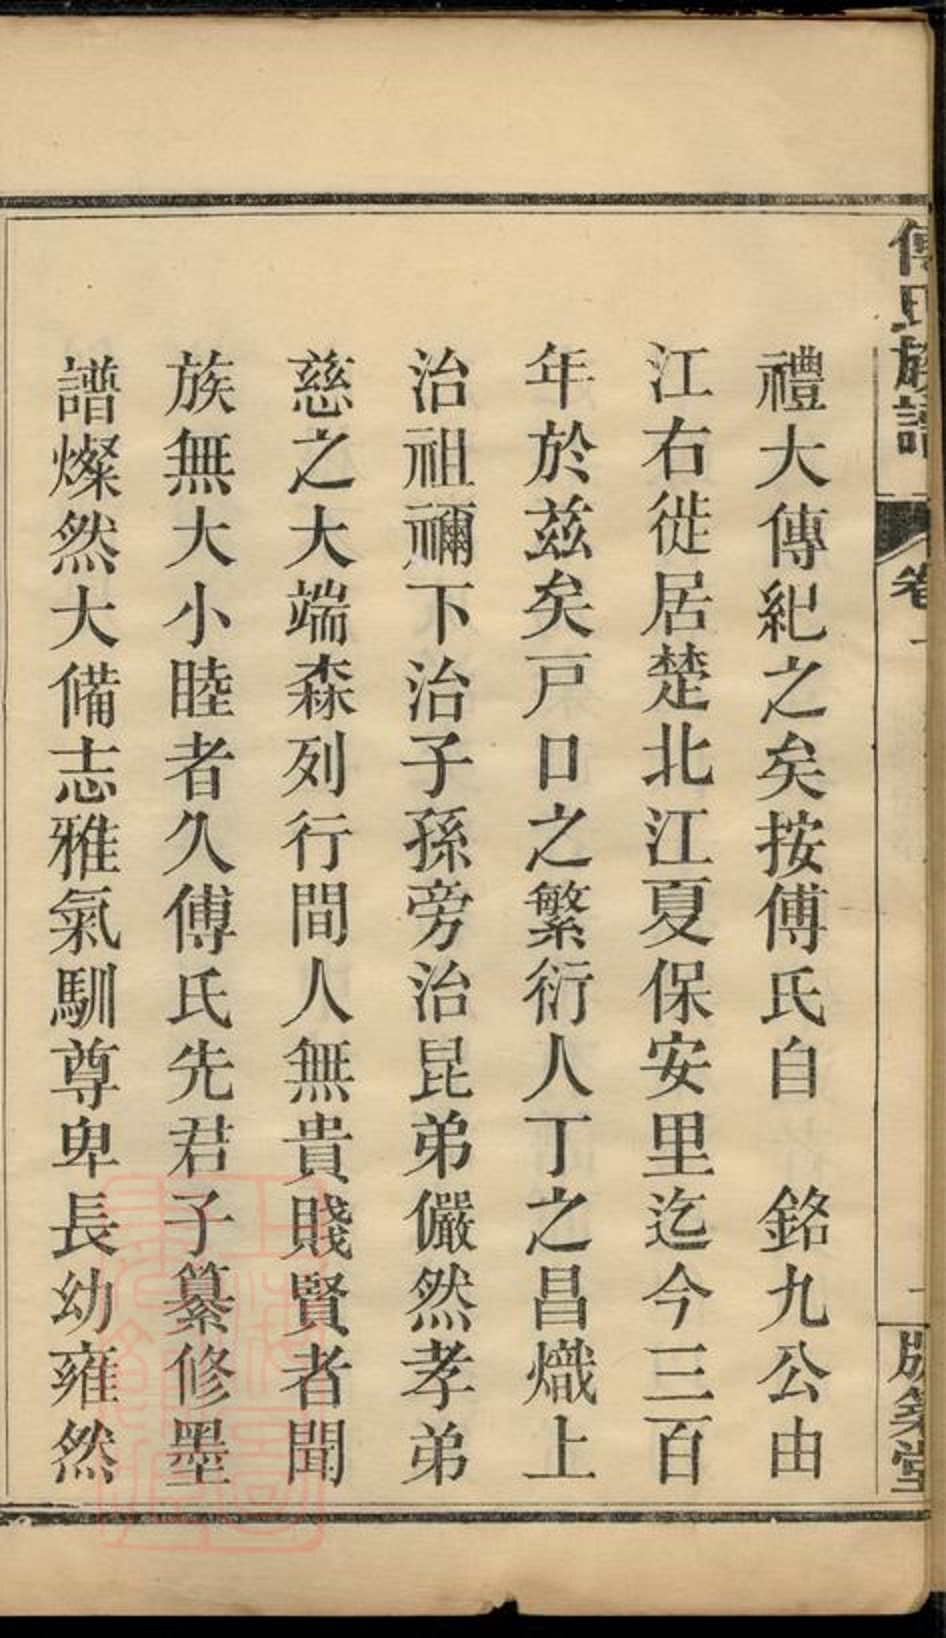 傅氏族譜
卷一
版築堂
禮大傳紀之矣按傅氏自　銘九公由
江右徙居楚北江夏保安里迄今三百
年於茲矣戸口之繁衍人丁之昌熾上
治祖禰下治子孫旁治昆弟儼然孝弟
慈之大端森列行間人無貴賤賢者聞
族無大小睦者久傅氏先君子纂修墨
譜燦然大備志雅氣馴尊卑長幼雍然